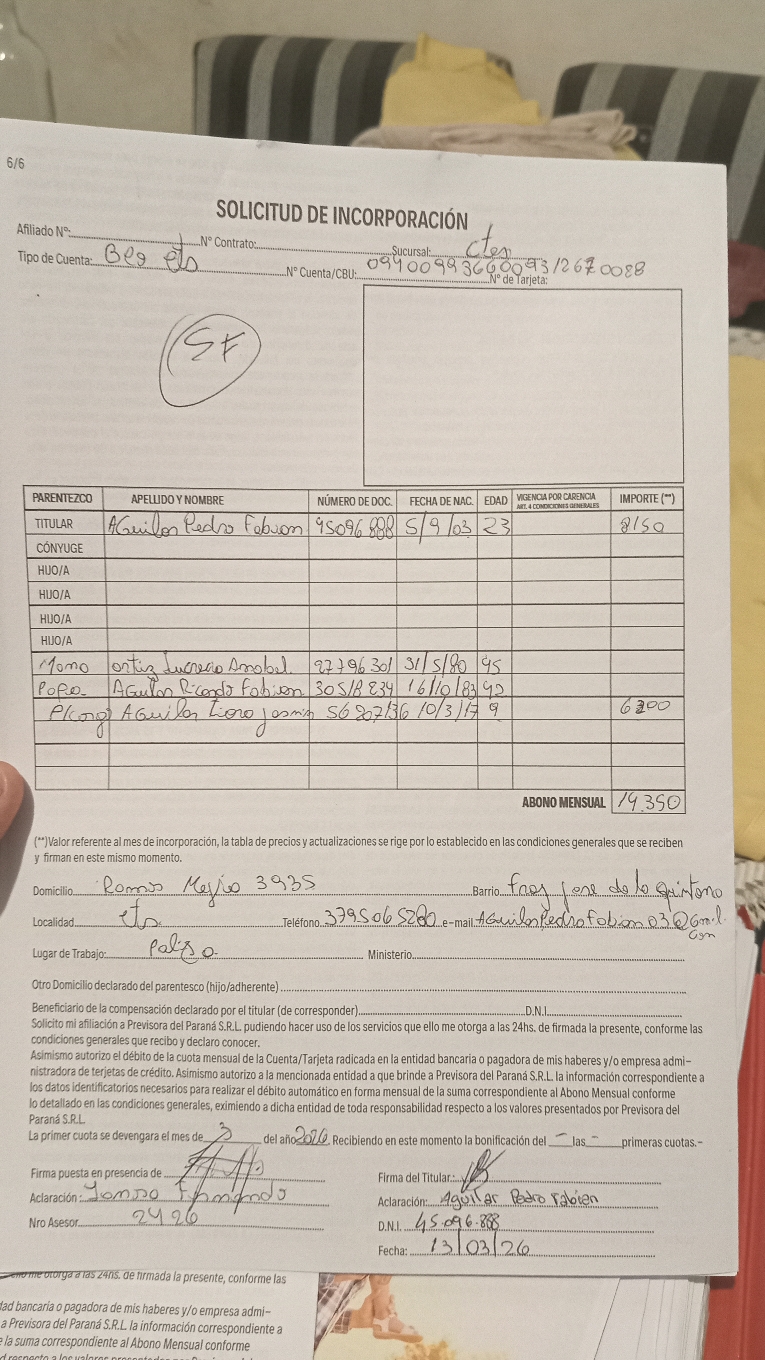 6/6
SOLICITUD DE INCORPORACIÓN
Afiliado Nº: Nº Contrato: Sucursal: Ctes
Tipo de Cuenta: Bco cts Nº Cuenta/CBU: 0940099366009312670088
Nº de Tarjeta:
SF
PARENTEZCO APELLIDO Y NOMBRE NÚMERO DE DOC. FECHA DE NAC. EDAD VIGENCIA POR CARENCIA ART. 4 CONDICIONES GENERALES IMPORTE (**)
TITULAR Aguilar Pedro Fabian 45096888 5/9/03 23 8150
CÓNYUGE
HIJO/A
HIJO/A
HIJO/A
HIJO/A
Mama Ortiz Lucrecia Anabel 27796301 31/5/80 45
Papa Aguilar Ricardo Fabian 30518234 16/10/83 42
Aguilar jasmin 56207136 10/3/17 9 6200
ABONO MENSUAL 14.350
(**)Valor referente al mes de incorporación, la tabla de precios y actualizaciones se rige por lo establecido en las condiciones generales que se reciben
y firman en este mismo momento.
Domicilio Ramos Mejia 3935 Barrio Fray jose de la quintana
Localidad cts. Teléfono 3795065280 e-mail AguilarPedroFabian03@Gmail.
Com
Lugar de Trabajo: Ministerio
Otro Domicilio declarado del parentesco (hijo/adherente)
Beneficiario de la compensación declarado por el titular (de corresponder) D.N.I.
Solicito mi afiliación a Previsora del Paraná S.R.L. pudiendo hacer uso de los servicios que ello me otorga a las 24hs. de firmada la presente, conforme las
condiciones generales que recibo y declaro conocer.
Asimismo autorizo el débito de la cuota mensual de la Cuenta/Tarjeta radicada en la entidad bancaria o pagadora de mis haberes y/o empresa admi-
nistradora de terjetas de crédito. Asimismo autorizo a la mencionada entidad a que brinde a Previsora del Paraná S.R.L. la información correspondiente a
los datos identificatorios necesarios para realizar el débito automático en forma mensual de la suma correspondiente al Abono Mensual conforme
lo detallado en las condiciones generales, eximiendo a dicha entidad de toda responsabilidad respecto a los valores presentados por Previsora del
Paraná S.R.L.
La primer cuota se devengara el mes de 3 del año 2026 Recibiendo en este momento la bonificación del - las - primeras cuotas.-
Firma puesta en presencia de Firma del Titular:
Aclaración: Fernando Aclaración: Aguilar Pedro Fabien
Nro Asesor 2426 D.N.I. 45.096.888
Fecha: 13/03/26
ello me otorga a las 24hs. de firmada la presente, conforme las
dad bancaria o pagadora de mis haberes y/o empresa admi-
a Previsora del Paraná S.R.L. la información correspondiente a
e la suma correspondiente al Abono Mensual conforme